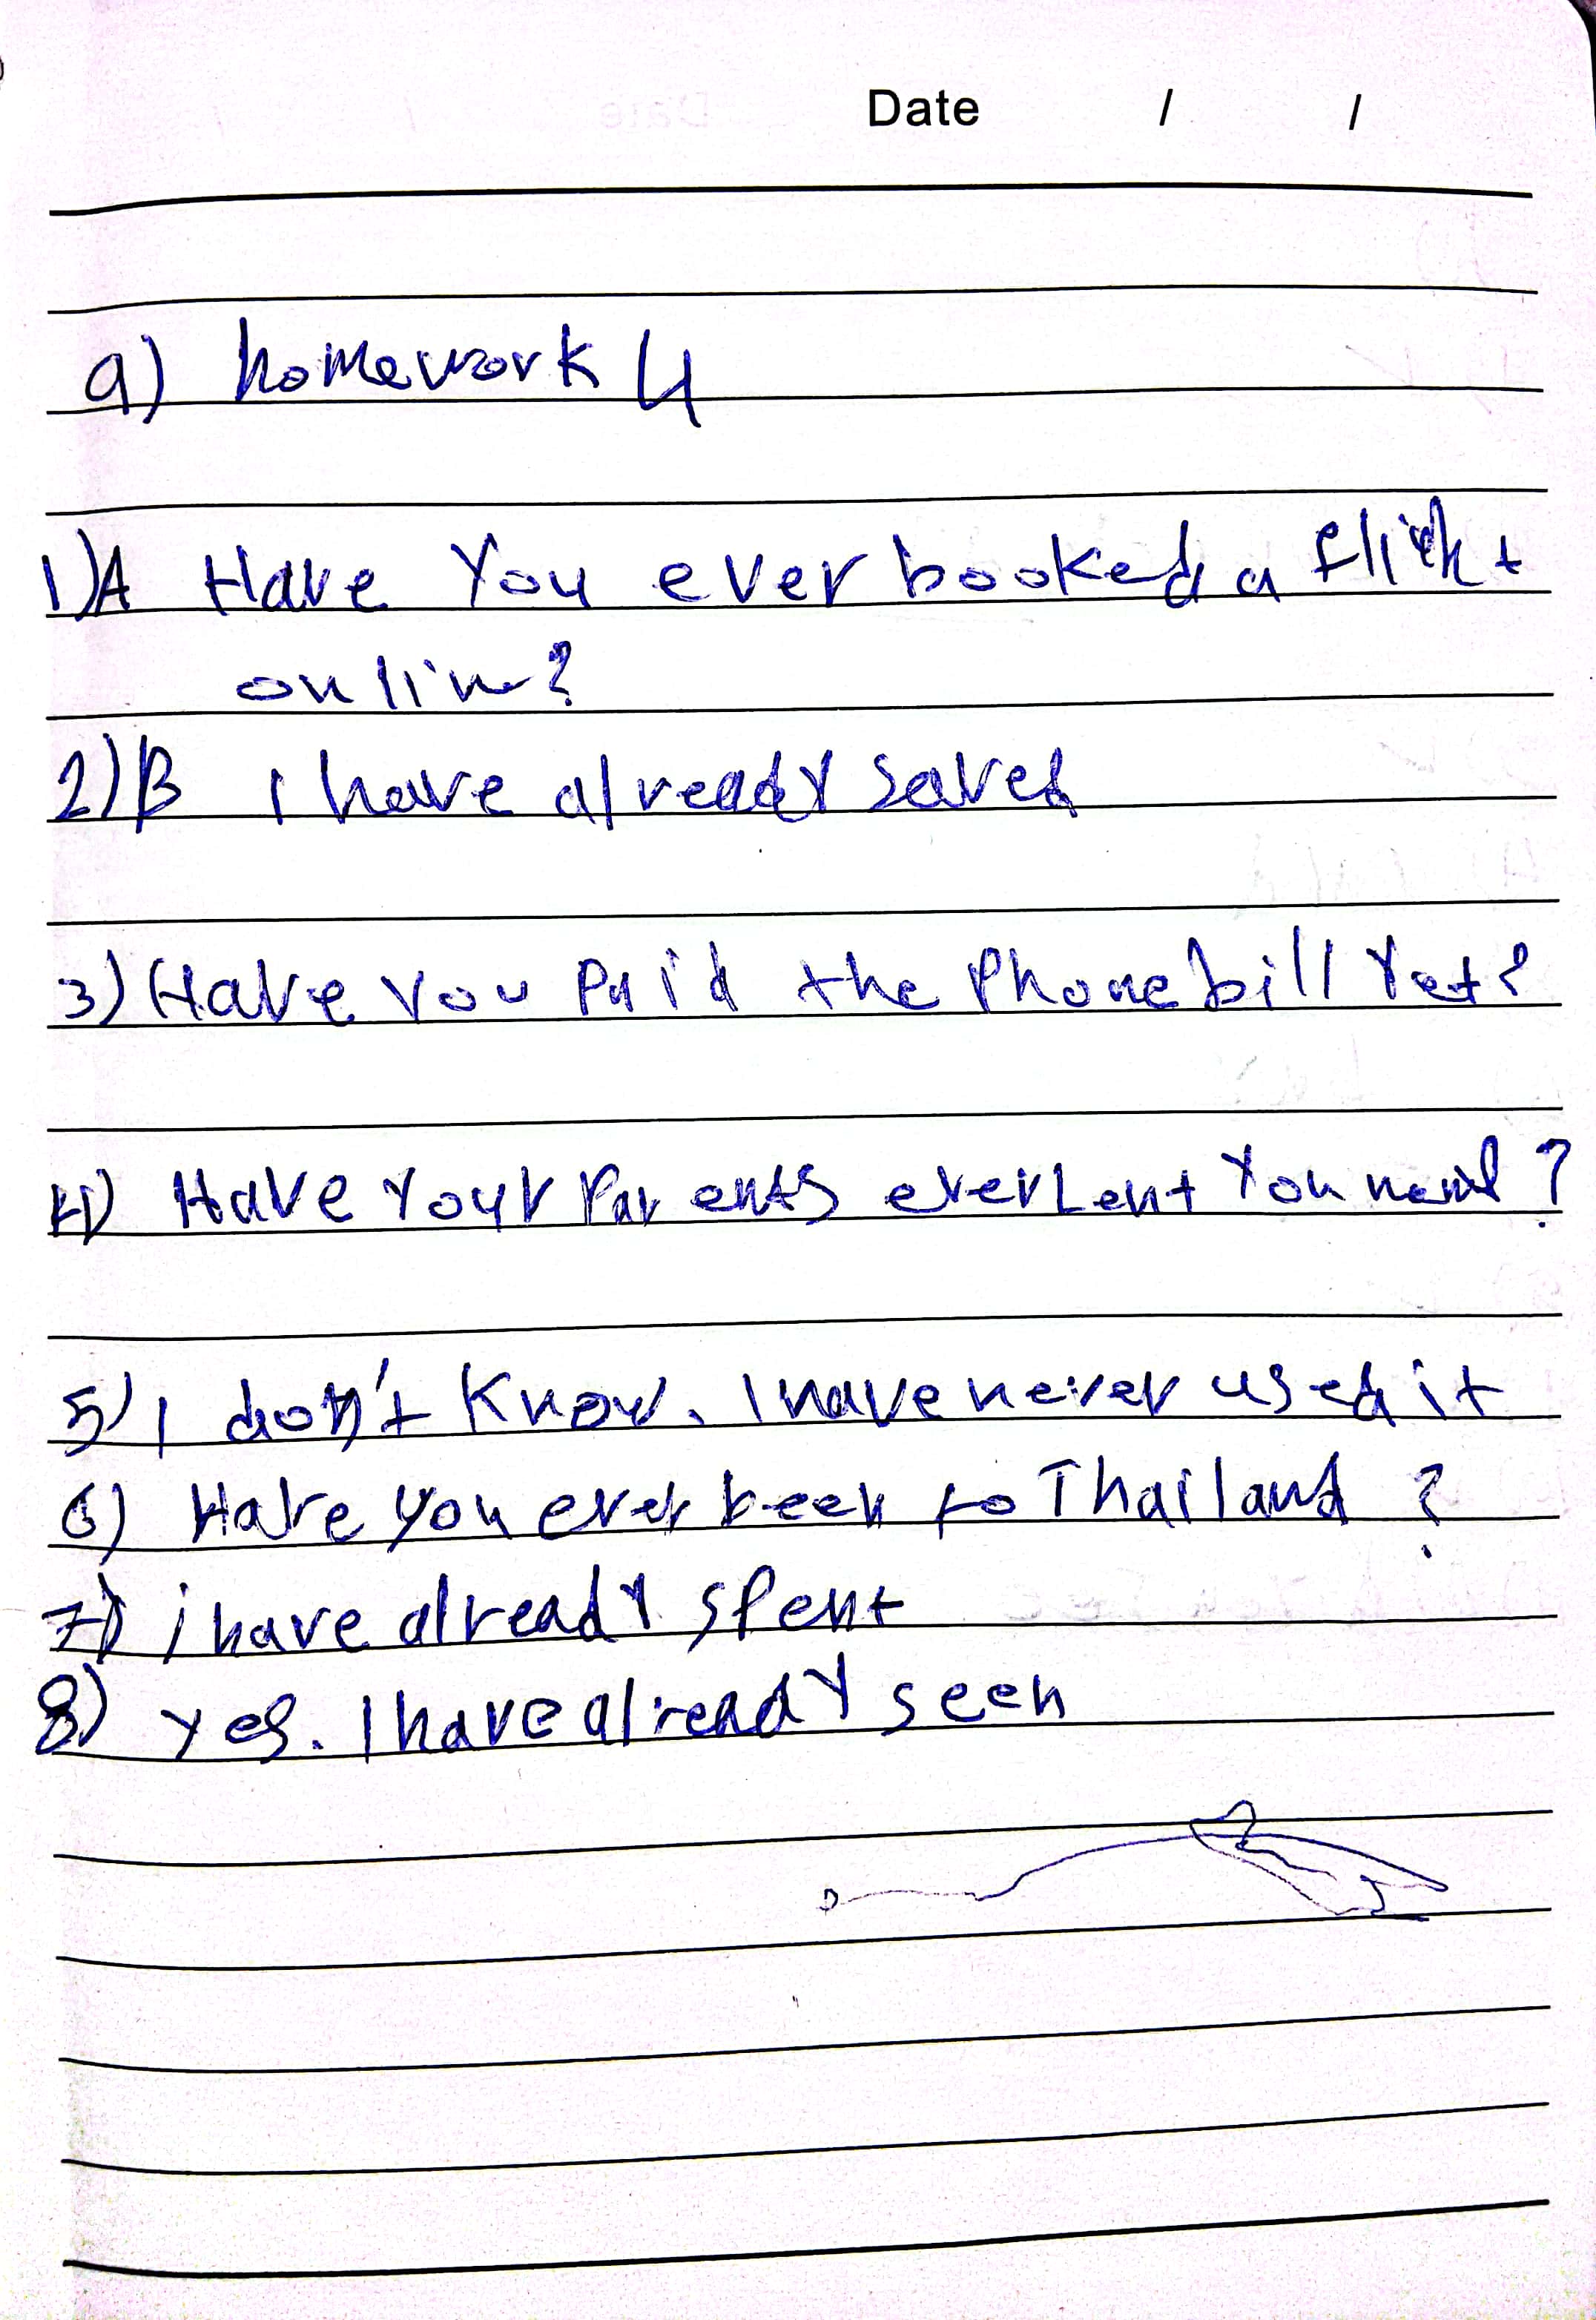 Date / /
a) homework 4
1) A Have You ever booked a
on lin?
2) B I have already saved
3) Have you Paid the Phone bill Yet?
4) Have Your Parents ever Lent You ?
5) I don't Know. I have never used it
6) Have you ever been to Thailand ?
7) i have already spent
8) yes. I have already seen